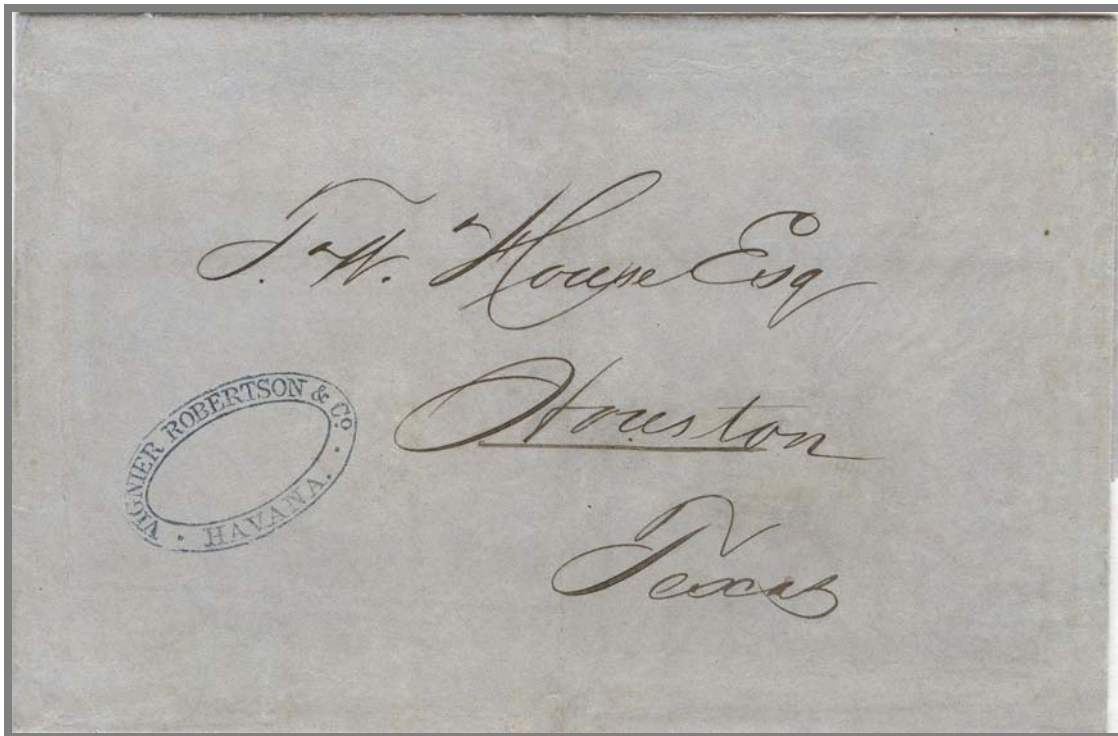 T. W. House Esq
Houston
Texas
VIGNIER ROBERTSON & Co.
· HAVANA. ·